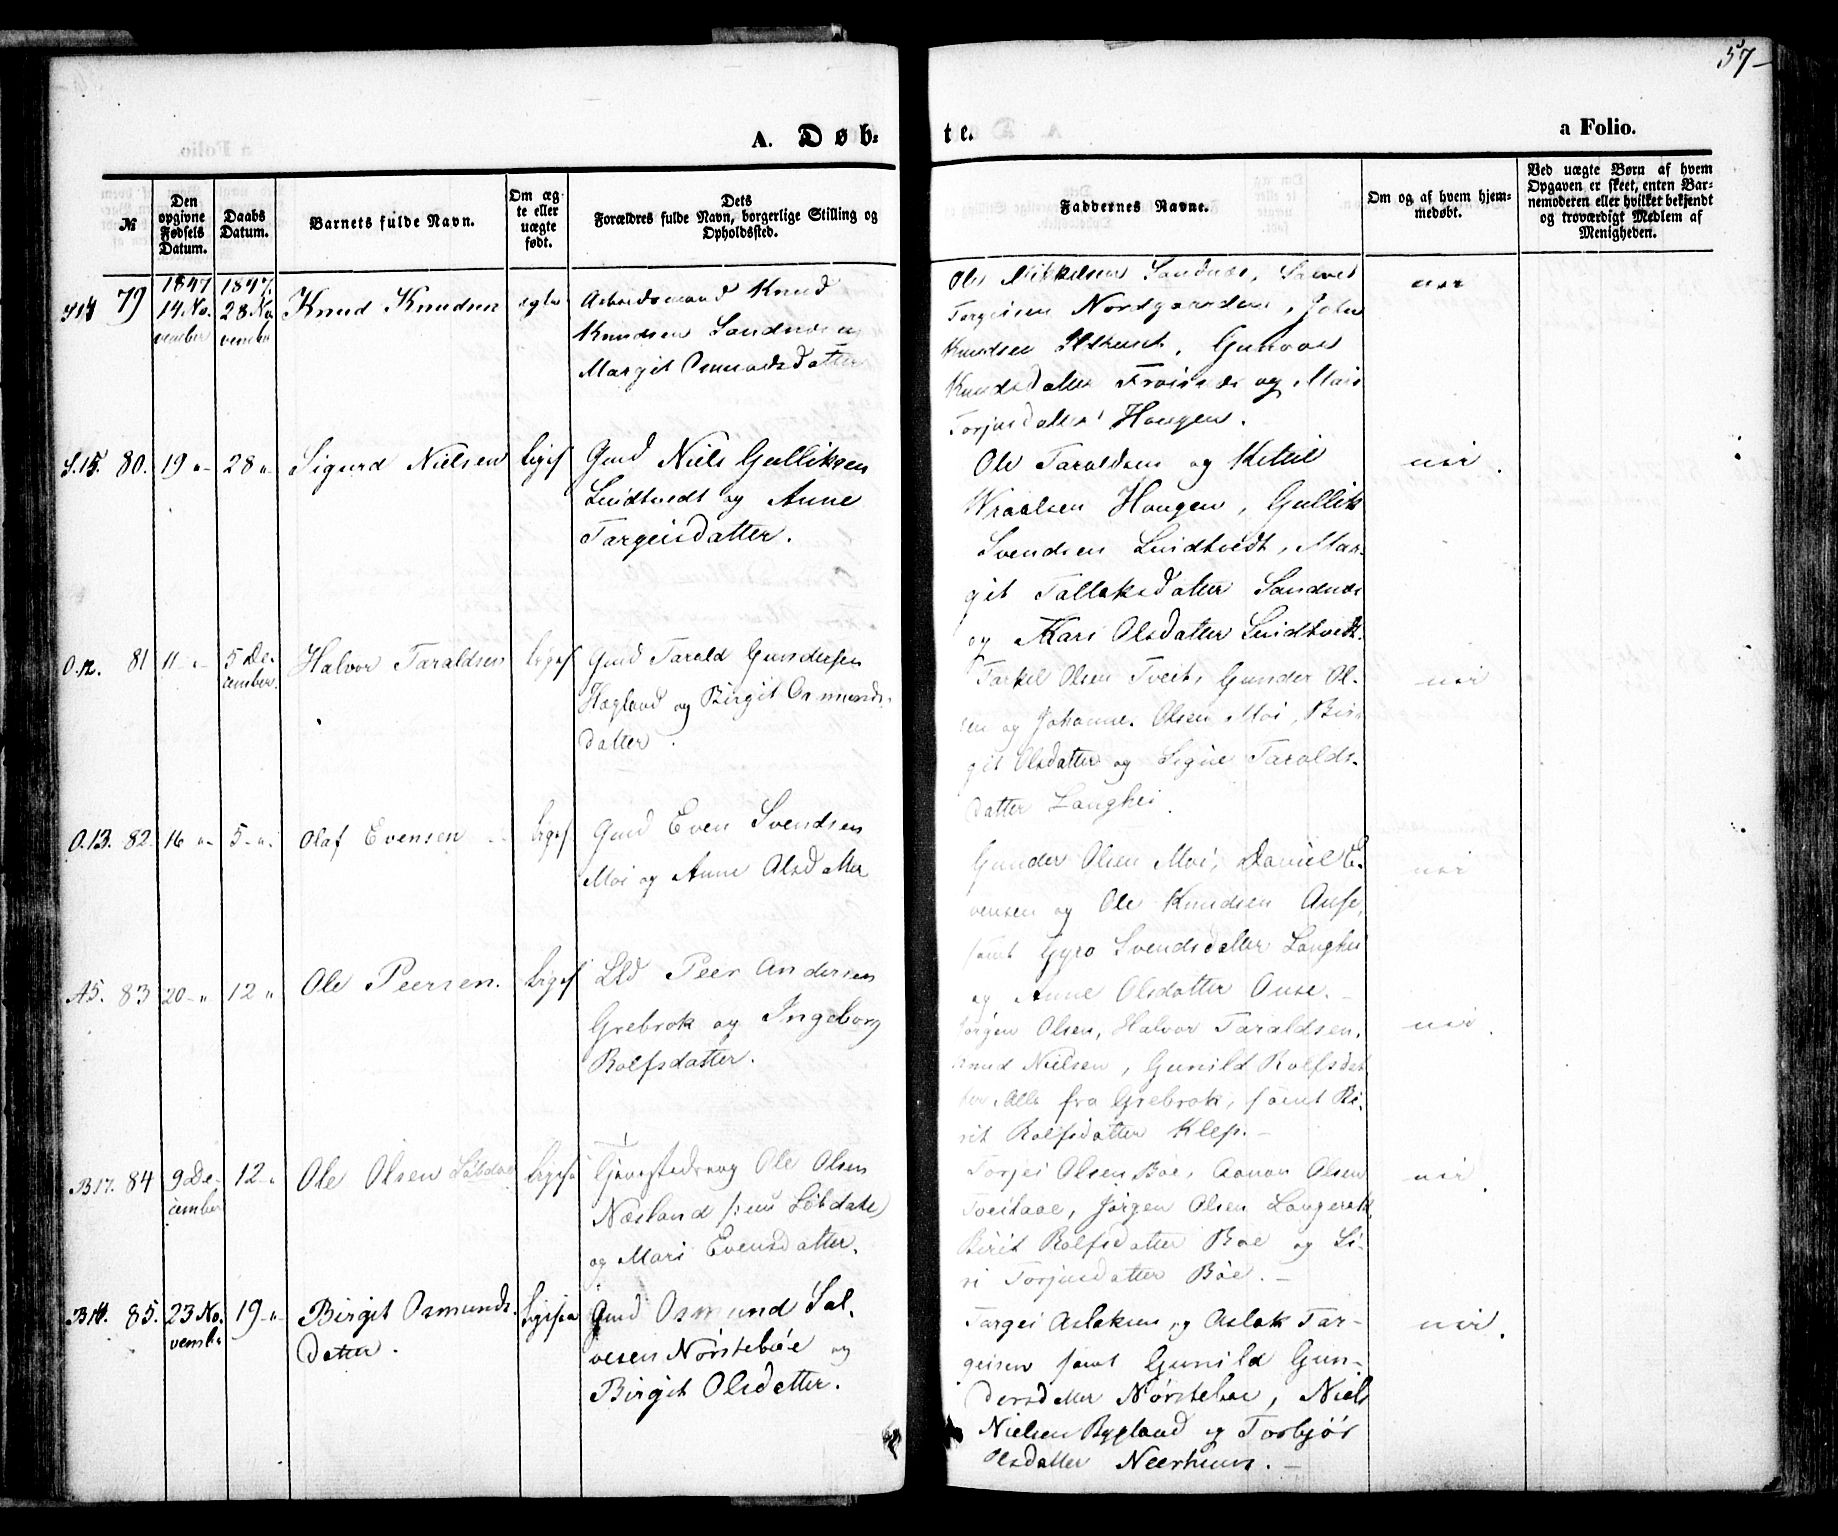 57
A. Døb-
te.
a Folio.
№
Den opgivne Fødsels Datum.
Daabs Datum.
Barnets fulde Navn.
Om ægte eller uægte født.
Dets Forældres fulde Navn, borgerlige Stilling og Opholdssted.
Faddernes Navne.
Om og af hvem hjemmedøbt.
Ved uægte Børn af hvem Opgaven er skeet, enten Barnemoderen eller hvilket bekjendt og troværdigt Medlem af Menigheden.
79
1847 14 No-
vember
1847. 28 No
vember
Knud Knudsen
ægte
Arbeidsmand Knud
Knudsen Sandnæs og
Margit Osmundsdatter
Ole Mikkelsen Sandnæs,
Torgeisen Nordgaarden, John
Knudsen
Knudsdatter Froisnæs og
Torjusdatter Hougen.
nei
S.15. 80. 19 "- 28 "
Sigurd Nielsen
ligesaa
Gmd Niels Gulliksen
Lindtvedt og Anne
Targeisdatter.
Ole Taraldsen og Ketil
Wraalsen Hougen, Gullik
Svendsen Lindtvedt, Mar-
git Tallaksdatter Sandnæs
og Kari Olsdatter Lindtvedt.
nei.
O.12. 81 11 "- 5 De-
cember.
Halvor Taraldsen
ligesaa
Gmd Tarald Gundersen
Hægland og Birgit Osmunds-
datter.
Tarkel Olsen Tveit, Gunder Ol-
sen og Johannes Olsen Moi, Bir-
git Olsdatter og Signe Taralds-
datter Langhei.
nei
O.13. 82. 16 "- 5 "-
Olaf Evensen
ligesaa
Gmd Even Svendsen
Moi og Anne Olsdatter
Gunder Olsen Moi, Daniel E-
vensen og Ole Knudsen Ause,
samt Gyro Svendsdatter Langhei
og Anne Olsdatter Ause.
nei
A5. 83 20 "- 12 "
Ole Peersen.
ligesaa
Lld Peer Andersen
Grebrok og Ingeborg
Rolfsdatter.
Jørgen Olsen, Halvor Taraldsen,
Knud Nielsen, Gunild Rolfsdat
ter, Alle fra Grebrok, samt Bi-
rit Rolfsdatter Klep.
nei.
B17. 84 9 De-
cember
12 "-
Ole Olsen Løbdal
ligesaa
Ole Olsen
Næsland /: nu Løbdal)
og Mari Evensdatter.
Torjei Olsen Boe, Aanon Olsen
Tveitaae, Jørgen Olsen Langerak,
Birit Rolfsdatter Boe og Si-
ri Torjusdatter Böe.
nei.
B14. 85. 23 No-
vember
19 "-
Birgit Osmunds-
datter.
ligesaa
Gmd Osmund Sal-
vesen Nørstebøe og
Birgit Olsdatter.
Targei Aslaksen, og Aslak Tar-
geisen samt Gunild Gun-
dersdatter Nørsteboe, Niels
Nielsen Bygland og Torbjør
Olsdatter Neerhuus.
nei.